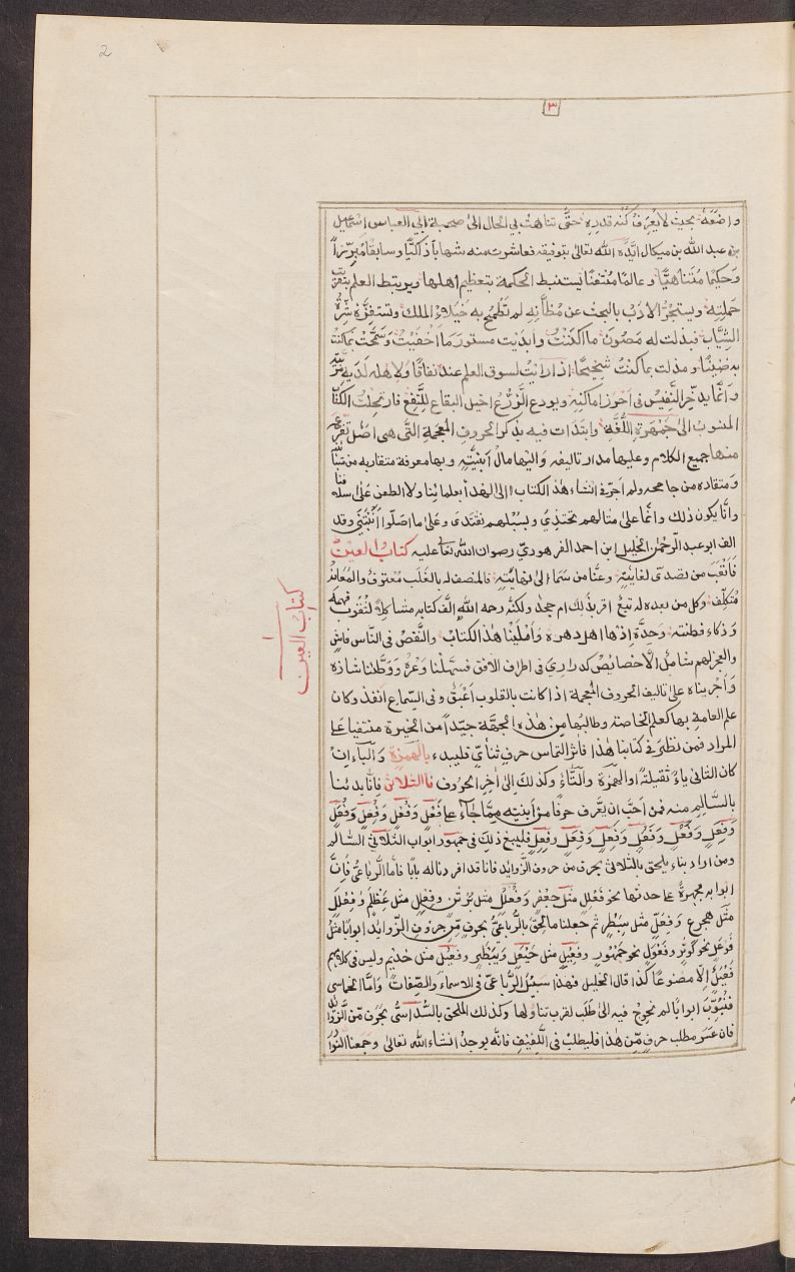 2
٣
واضعه بحيث لا يعرف كنه قدره حتى تناهت بي الحال الى صحبة ابي العباس اسمعيل
بن عبد الله بن ميكال ايده الله تعالى بتوفيقه فعاشرت منه شهابا ذكيا وسابقا مبرزا
وحكيما متناهيا وعالما متقنا يستنبط الحكمة بتعظيم اهلها ويرتبط العلم بتقريب
حملته ويستجر الادب بالبحث عن مظانه لم تطمح به خيلاء الملك وتستفزه شرة
الشباب فبذلت له مصون ما اكننت وابديت مستور ما اخفيت وسمحت بما كنت
به ضنينا ومذلت بما كنت شحيحا اذ رايت لسوق العلم عنده نفاقا ولاهله لديه مزية
وانما يدخر النفيس في احرز اماكنه ويودع الزرع اخيل البقاع للنفع فارتجلت الكتاب
المنسوب الى جمهرة اللغة وابتدات فيه بذكر الحروف المعجمة التي هي اصل تفرع
منها جميع الكلام وعليها مدار تاليفه واليها مال ابنيته وبها معرفة متقاربه من متباينه
ومنقاده من جامحه ولم اجر في انشاء هذا الكتاب الى الازراء بعلمائنا ولا الطعن على اسلافنا
وانا يكون ذلك وانما على مثالهم نحتذي وبسبلهم نقتدى وعلى ما اصلوا نبتني وقد
الف ابو عبد الرحمن الخليل ابن احمد الفرهودي رضوان الله تعا عليه كتاب العين
فاتعب من تصدى لغايته وعنا من سما الى نهايته فالمنصف له بالغلب معترف والمعاند
متكلف وكل من بعده له تبع اقر بذلك ام جحد ولكنه رحمه الله الف كتابه مشاكلا لثقوب فهمه
وذكاء فطنته وحدة اذهان اهل دهره واملينا هذا الكتاب والنقص في الناس فاش
والعجز لهم شامل الا خصائص كدراري في اطراف الافق فسهلنا وعره ووطئنا شازه
واجريناه على تاليف الحروف المعجمة اذا كانت بالقلوب اعبق وفى السماع انفذ وكان
علم العامة بها كعلم الخاصته وطالبها من هذه الجهة جيدا من الحيرة منتفيا على
المراد فمن نظر في كتابنا هذا فاثر التماس حرف ثنائي فليبدء بالهمزة والباء ان
كان الثاني ياء ثقيلة او الهمزة والتاء وكذلك الى اخر الحروف فاالثلاثي فانا بدئنا
بالسالم منه فمن احب ان يعرف حرفا من ابنيته مما جاء على فعل وفعل وفعل وفعل
وفعل وفعل وفعل وفعل وفعل وفعل فليبغ ذلك في جمهور ابواب الثلاثي السالم
ومن اراد بناء يلحق بالثلاثي بحرف من حروف الزوايد فانا قد افردنا له بابا فاما الرباعى فان
ابوابه مجمهرة على حدتها نحو فعلل مثل جعفر وفعلل مثل برثن وفعلل مثل عظلم وفعلل
مثل هجرع وفعل مثل سبطر ثم جعلنا ما لحق بالرباعى بحرف من حروف الزوايد ابوابا مثل
فوعل نحو كوثر وفعول نحو جهور وفعيل مثل خيعل وبيطر وفعيل مثل حذيم وليس في كلامهم
فعيل الا مصنوعا كذا قال الخليل فهذا سبيل الرباعى في الاسماء والصفات واما الخماسى
فنبوب ابوابا لم نحوج فيه الى طلب لقرب تناولها وكذلك الملحق بالسداسى بحرف من الزوائد
فان عسر مطلب حرف من هذا فليطلب في اللفيف فانه يوجد انشاء الله تعالى وجمعنا النوادر
كتاب العين